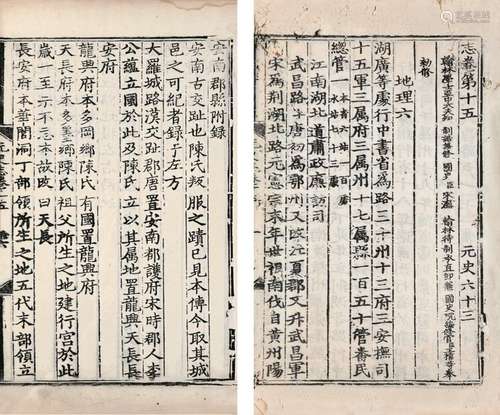 志卷第十五　元史六十三
翰林學士亞中大夫知制誥兼修國史臣宋濂　翰林待制承直郎兼國史院編修官臣王禕奉
勑修
地理六
湖廣等處行中書省爲路三十州十三府三安撫司
十五軍三屬府三屬州十七屬縣一百五十管番民
總管一
江南湖北道肅政廉訪司
武昌路唐初爲鄂州又改江夏郡又升武昌軍
宋爲荆湖北路元憲宗末年世祖南伐自黄州陽
安南郡縣附録
安南古交趾也陳氏叛服之蹟已見本傳今取其城
邑之可紀者録于左方
大羅城路漢交趾郡唐置安南都護府宋時郡人李
公藴立國於此及陳氏立以其屬地置龍興天長長
安府
龍興府本多岡鄉陳氏有國置龍興府
天長府本多墨鄉陳氏祖父所生之地建行宫於此
歲一至示不忘本故改曰天長
長安府本華閭洞丁部領所生之地五代末部領立